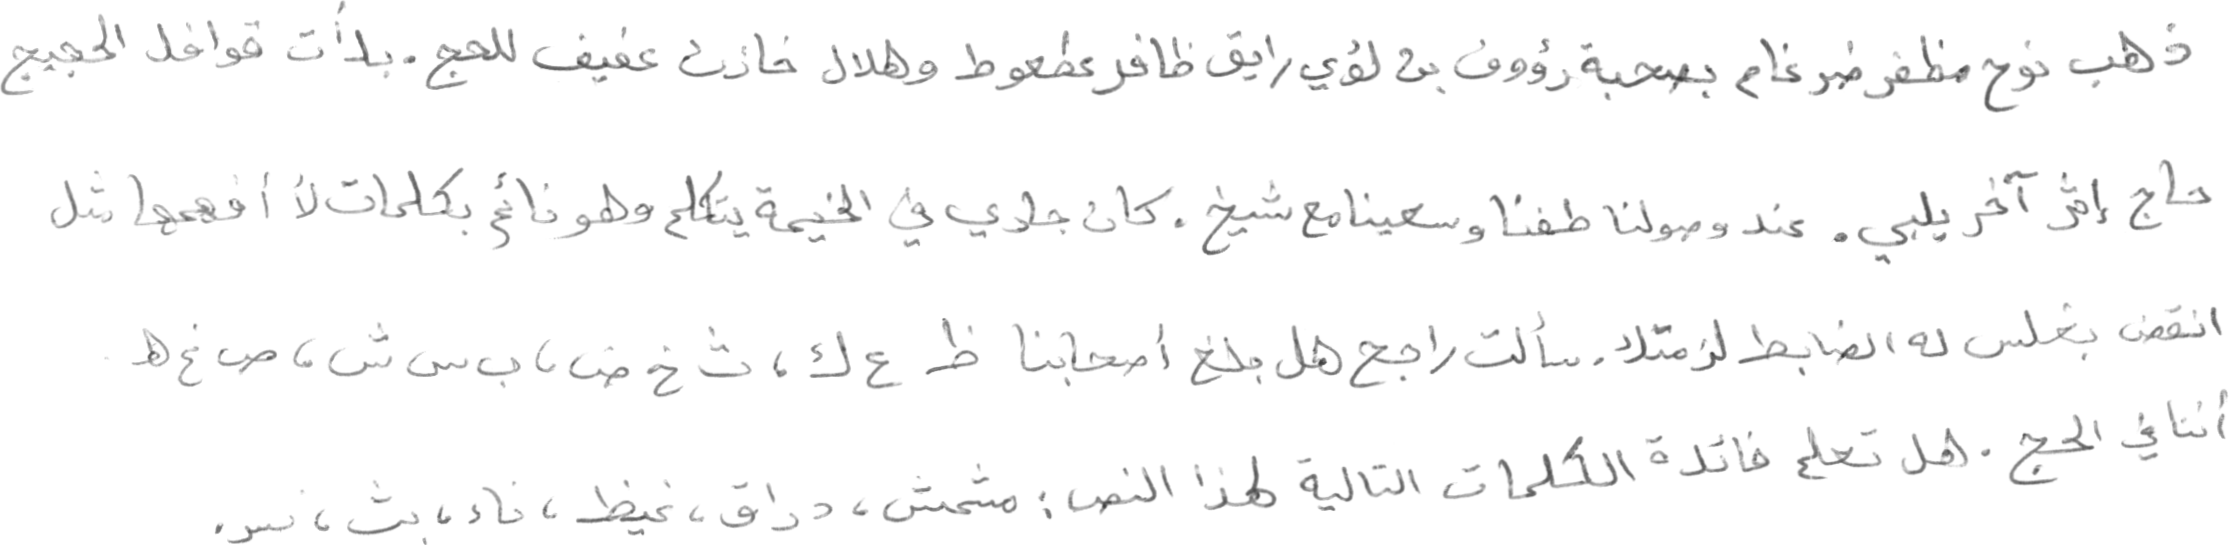 ذهب نوح مظفر ضرغام بصحبة رؤوف بن لؤي رايق ظافر عطعوط وهلال خازن عفيف للحج. بدأت قوافل الحجيج
حاج إثر آخر يلبي. عند وصولنا طفنا وسعينا مع شيخ. كان جاري في الخيمة يتكلم وهو نائم بكلمات لا أفهمها مثل
انقض بغلس له الضابط لزمتلا. سألت راجح هل بلغ أصحابنا ظ ع ك، ث خ ض، ب س ش، ص غ ه
أننا في الحج. هل تعلم فائدة الكلمات التالية لهذا النص: مشمش، دراق، غيظ، ناء، بث، نس.